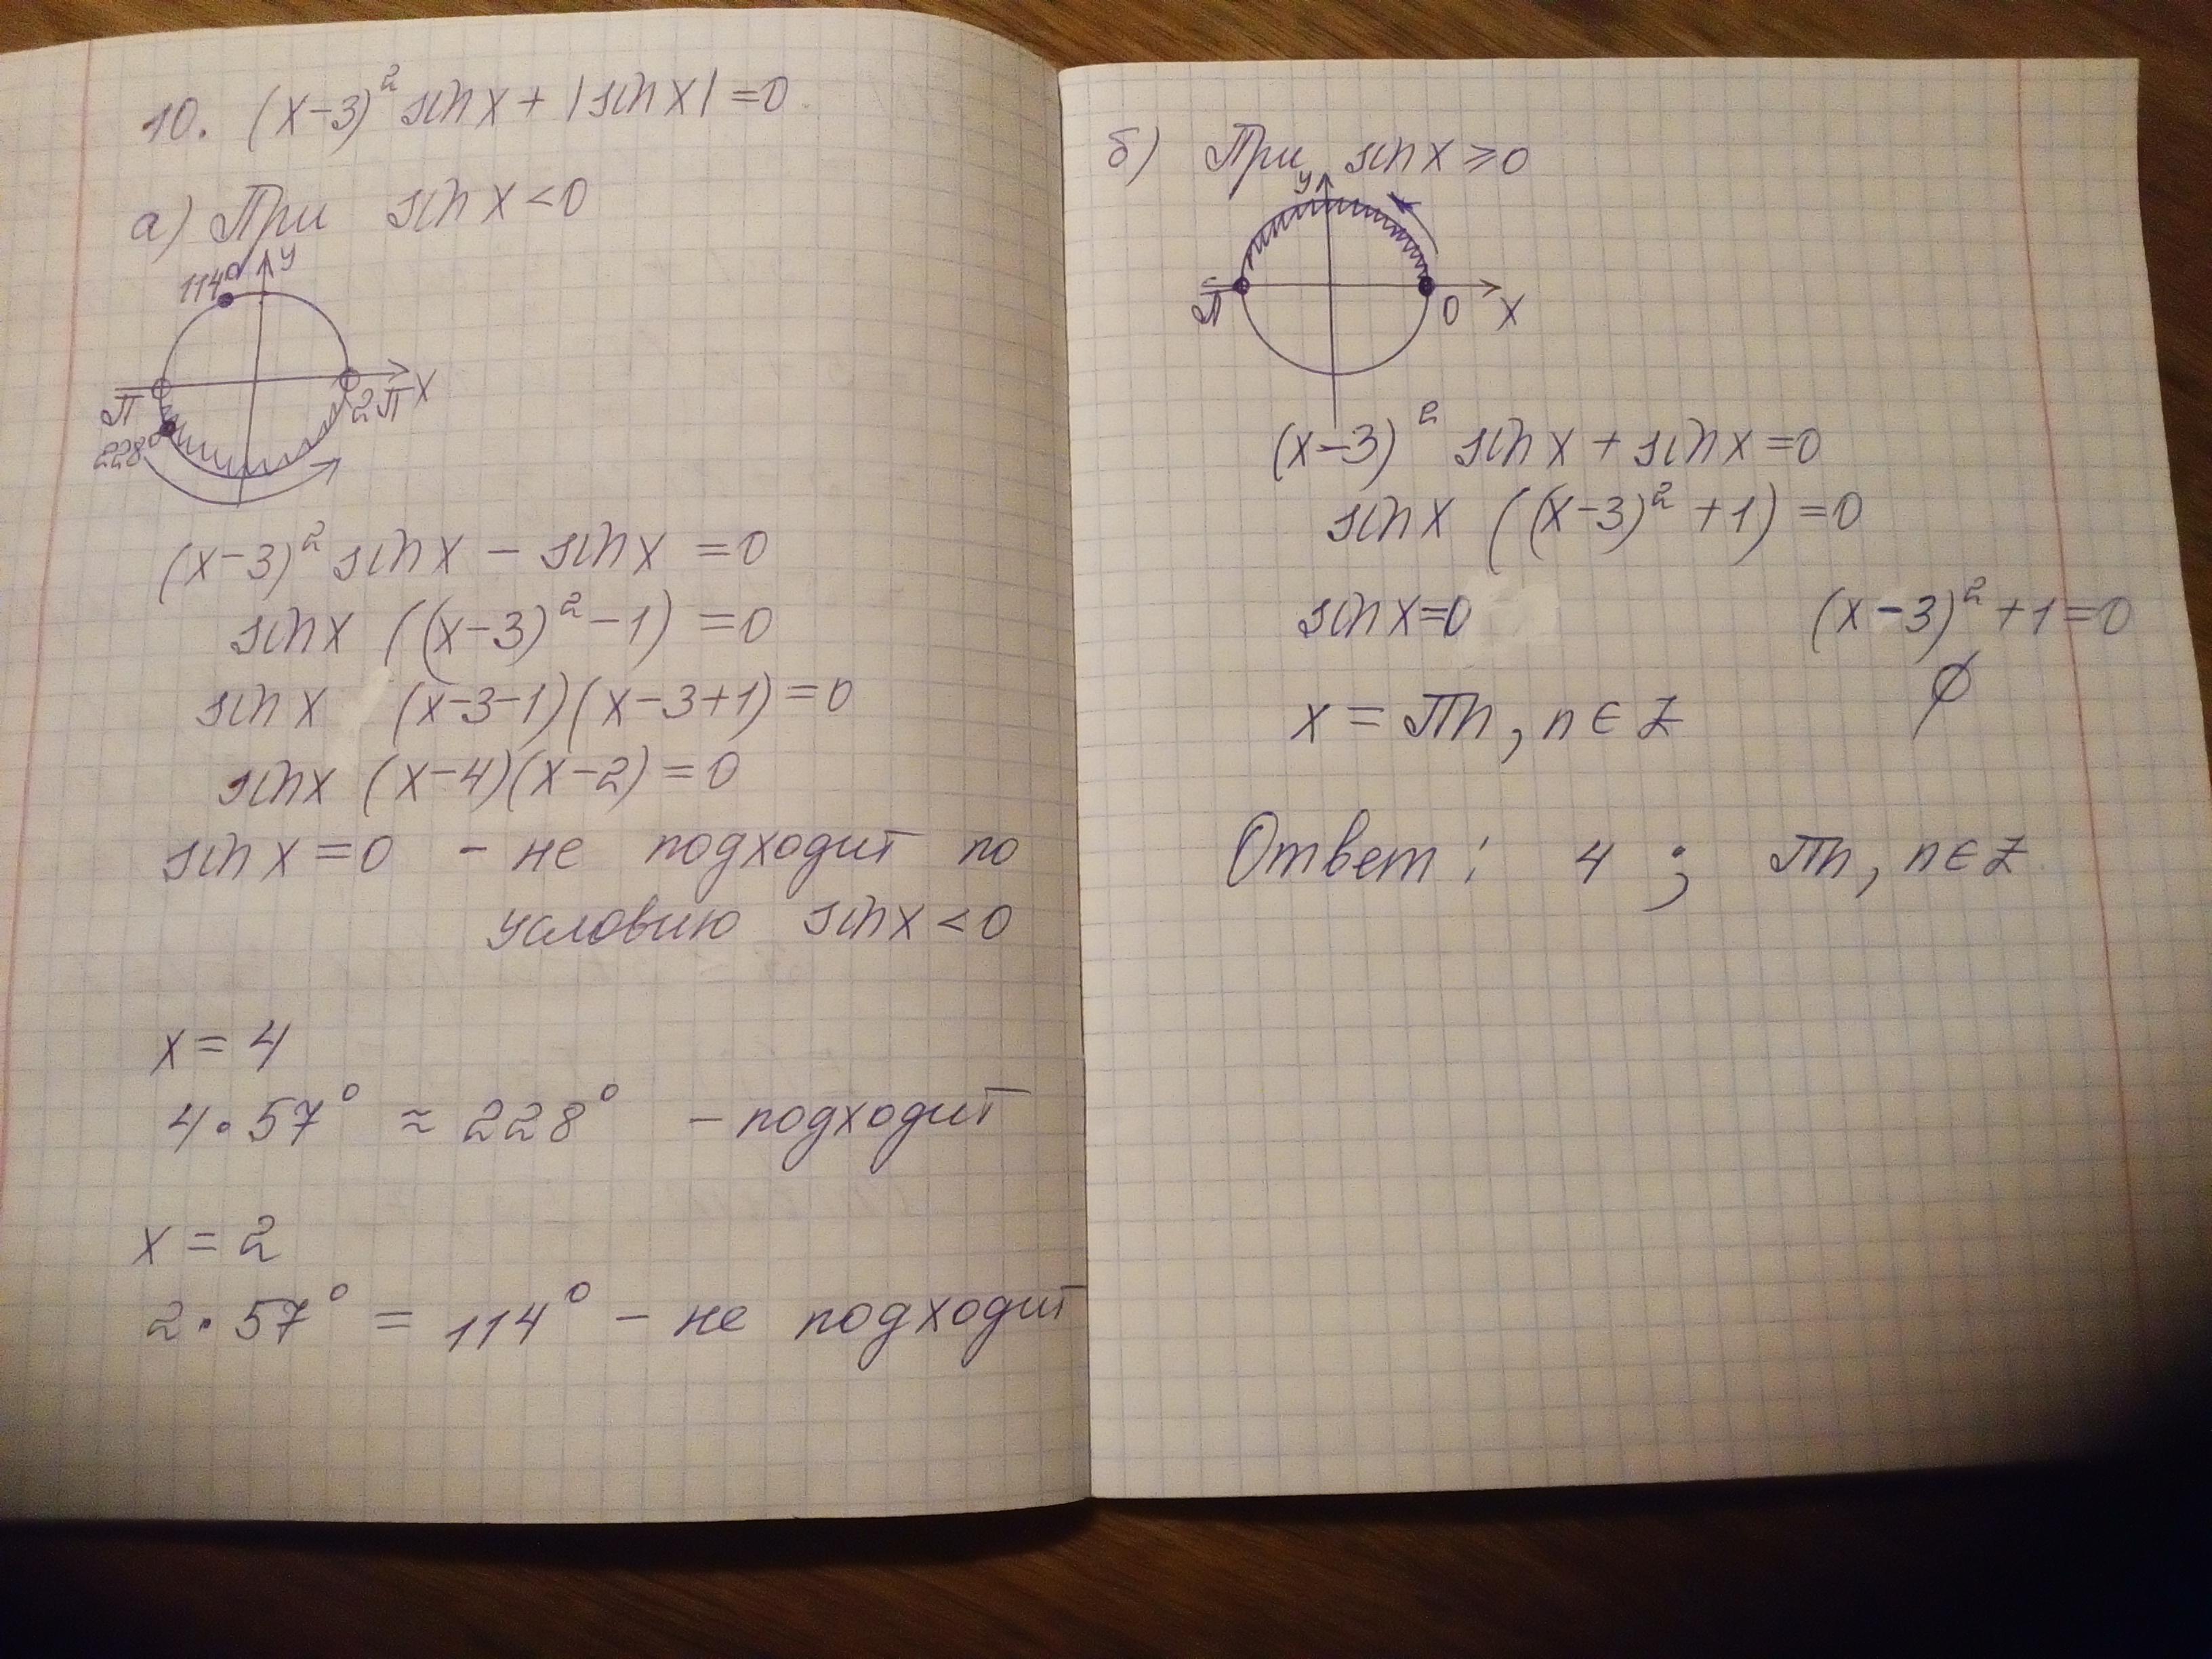 10. (x-3)² sin x + |sin x| = 0
а) При sin x < 0
y
114°
π
2π x
228°
(x-3)² sin x - sin x = 0
sin x ((x-3)² - 1) = 0
sin x (x-3-1)(x-3+1) = 0
sin x (x-4)(x-2) = 0
sin x = 0 - не подходит по
условию sin x < 0
x = 4
4·57° ≈ 228° - подходит
x = 2
2·57° = 114° - не подходит
б) При sin x ⩾ 0
y
π
0 x
(x-3)² sin x + sin x = 0
sin x ((x-3)² + 1) = 0
sin x = 0 (x-3)² + 1 = 0
∅
x = πn, n ∈ Z
Ответ: 4; πn, n ∈ Z